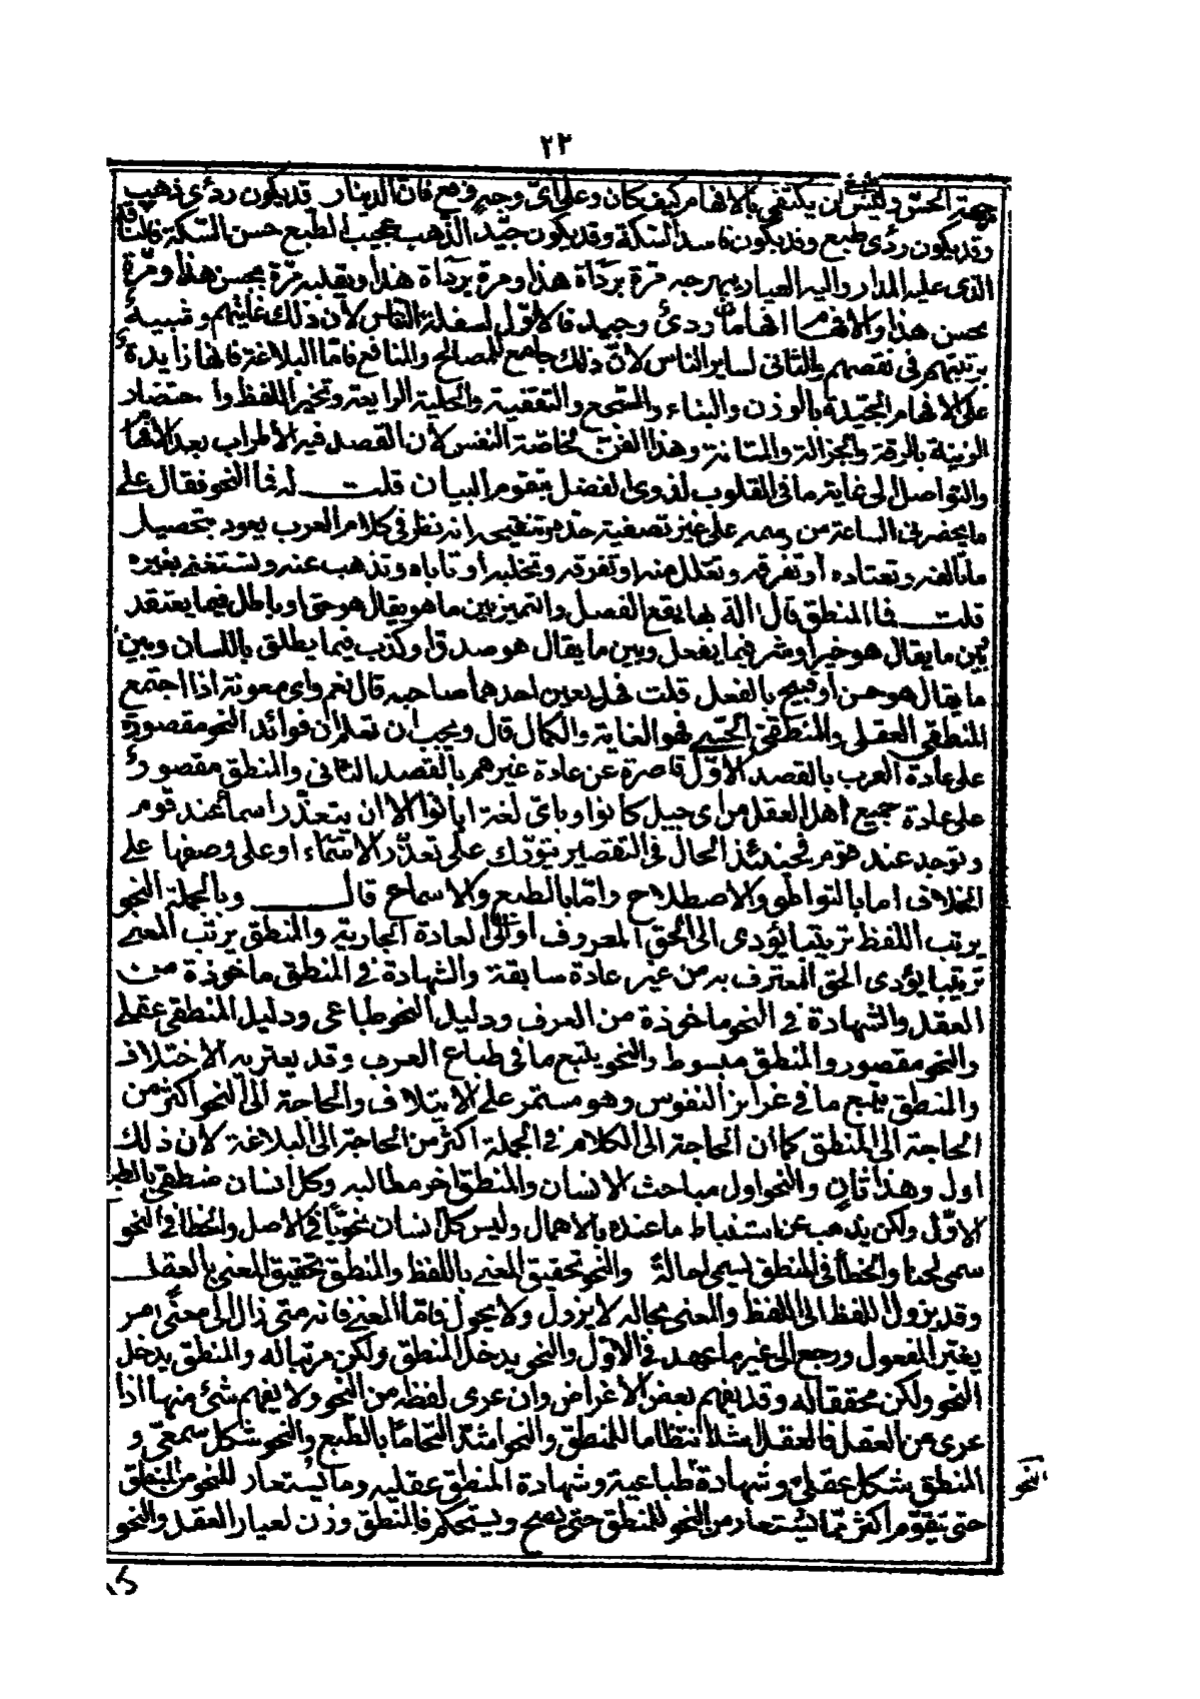 ٢٢
جهة الحس وليس ينبغي أن يكتفي بالافهام كيف كان وعلى اىّ وجه وقع فان الدينار قد يكون ردئ ذهب
وقد يكون ردئ طبع وقد يكون فاسد السكة وقد يكون جيّد الذهب عجيب الطبع حسن السكة فالناقد
الذى عليه المدار واليه العيار يبهرجه مرّة برداة هذا ومرة برداة هذا ويقلبه مرّة بحسن هذا ومرّة
بحسن هذا والافهام افهامان ردئ وجيد فالاوّل لسفلة الناس لأن ذلك غايتهم وشبيه
برتبتهم فى نقصهم والثانى لساير الناس لأنّ ذلك جامع للمصالح والمنافع فامّا البلاغة فانها زايدة
على الافهام الجيّد بالوزن والبناء والسّجع والتقفية والحلية الرايعة وتخير اللفظ واختصار
الزينة بالرقة والجزالة والمتانة وهذا الفنّ لخاصّة النفس لأن القصد فيه الاطراب بعد الافهام
والتواصل الى غاية ما فى القلوب لذوى الفضل بتقويم البيان قلت له فما النحو فقال على
ما يحضرنى الساعة من رسمه على غير تصفية حدّه وتنقيحه انه نظر فى كلام العرب يعود بتحصيل
ما تألفه وتعتاده أو تفرقه وتعلل منه او تفرقه وتخليه أو تأباه وتذهب عنه وتستغنى بغيره
قلت فما المنطق قال آلة بها يقع الفصل والتميز بين ما هو يقال هو حق او باطل فيما يعتقد
بين ما يقال هو خير او شر فيما يفعل وبين ما يقال هو صدق او كذب فيما يطلق باللسان وبين
ما يقال هو حسن أو قبيح بالفعل قلت فهل يعين احدهما صاحبه قال نعم واى معونة اذا اجتمع
المنطقى العقلى والمنطقى الحسّى فهو الغاية والكمال قال ويجب ان تعلم ان فوائد النحو مقصورة
على عادة العرب بالقصد الاوّل قاصرة عن عادة غيرهم بالقصد الثانى والمنطق مقصور
على عادة جميع أهل العقل من اى جيل كانوا وباىّ لغة ابانوا الا ان يتعذر اسماء عند قوم
وتوجد عند قوم فحينئذ الحال فى التقصير يتورك على تعذّر الاسماء او على وصفها على
الخلاف اما بالتواطؤ والاصطلاح وامّا بالطبع والاسماع قال وبالجملة النحو
يرتب اللفظ ترتيبا يؤدى الى الحق المعروف او الى العادة الجارية والمنطق يرتب المعنى
ترتيبا يؤدى الحق المعترف به من غير عادة سابقة والشهادة فى المنطق ماخوذة من
العقل والشهادة فى النحو ماخوذة من العرف ودليل النحو طباعى ودليل المنطقى عقلى
والنحو مقصور والمنطق مبسوط والنحو يتبع ما فى طباع العرب وقد يعتريه الاختلاف
والمنطق يتبع ما فى غرايز النفوس وهو مستمر على الايتلاف والحاجة الى النحو أكثر من
الحاجة الى المنطق كما ان الحاجة الى الكلام فى الجملة اكثر من الحاجة الى البلاغة لأن ذلك
أول وهذا ثان والنحو اول مباحث الانسان والمنطق اخر مطالبه وكل انسان منطقى بالطبع
الاوّل ولكن يذهب عن استنباط ما عنده بالاهمال وليس كلّ انسان نحويّا فى الأصل والخطأ فى النحو
سمى لحنا والخطأ فى المنطق يسمى احالة والنحو تحقيق المعنى باللفظ والمنطق تحقيق المعنى بالعقل
وقد يزول اللفظ الى اللفظ والمعنى بحاله لا يزول ولا يحول فامّا المعنى فانه متى زال الى معنى اخر
يغيّر المفعول ورجع الى غير ما عهد فى الأوّل والنحو يدخل المنطق ولكن مرتبا له والمنطق يدخل
النحو ولكن محققا له وقد يفهم بعض الأغراض وان عرى لفظه من النحو ولا يفهم شئ منها اذا
عرى من العقل فالعقل اشد انتظاما للمنطق والنحو اشد التحاما بالطبع والنحو شكل سمعىّ و
المنطق شكل عقلىّ وشهادة طباعية وشهادة المنطق عقليه وما يستعار للنحو من المنطق
النحو
حتى يتقوّم اكثر ممّا يستعار من النحو للمنطق حتى يصح ويستحكم فالمنطق وزن لعيار العقل والنحو